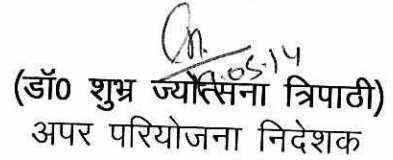 (डॉ0 शुभ्र ज्योत्सना त्रिपाठी)
अपर परियोजना निदेशक